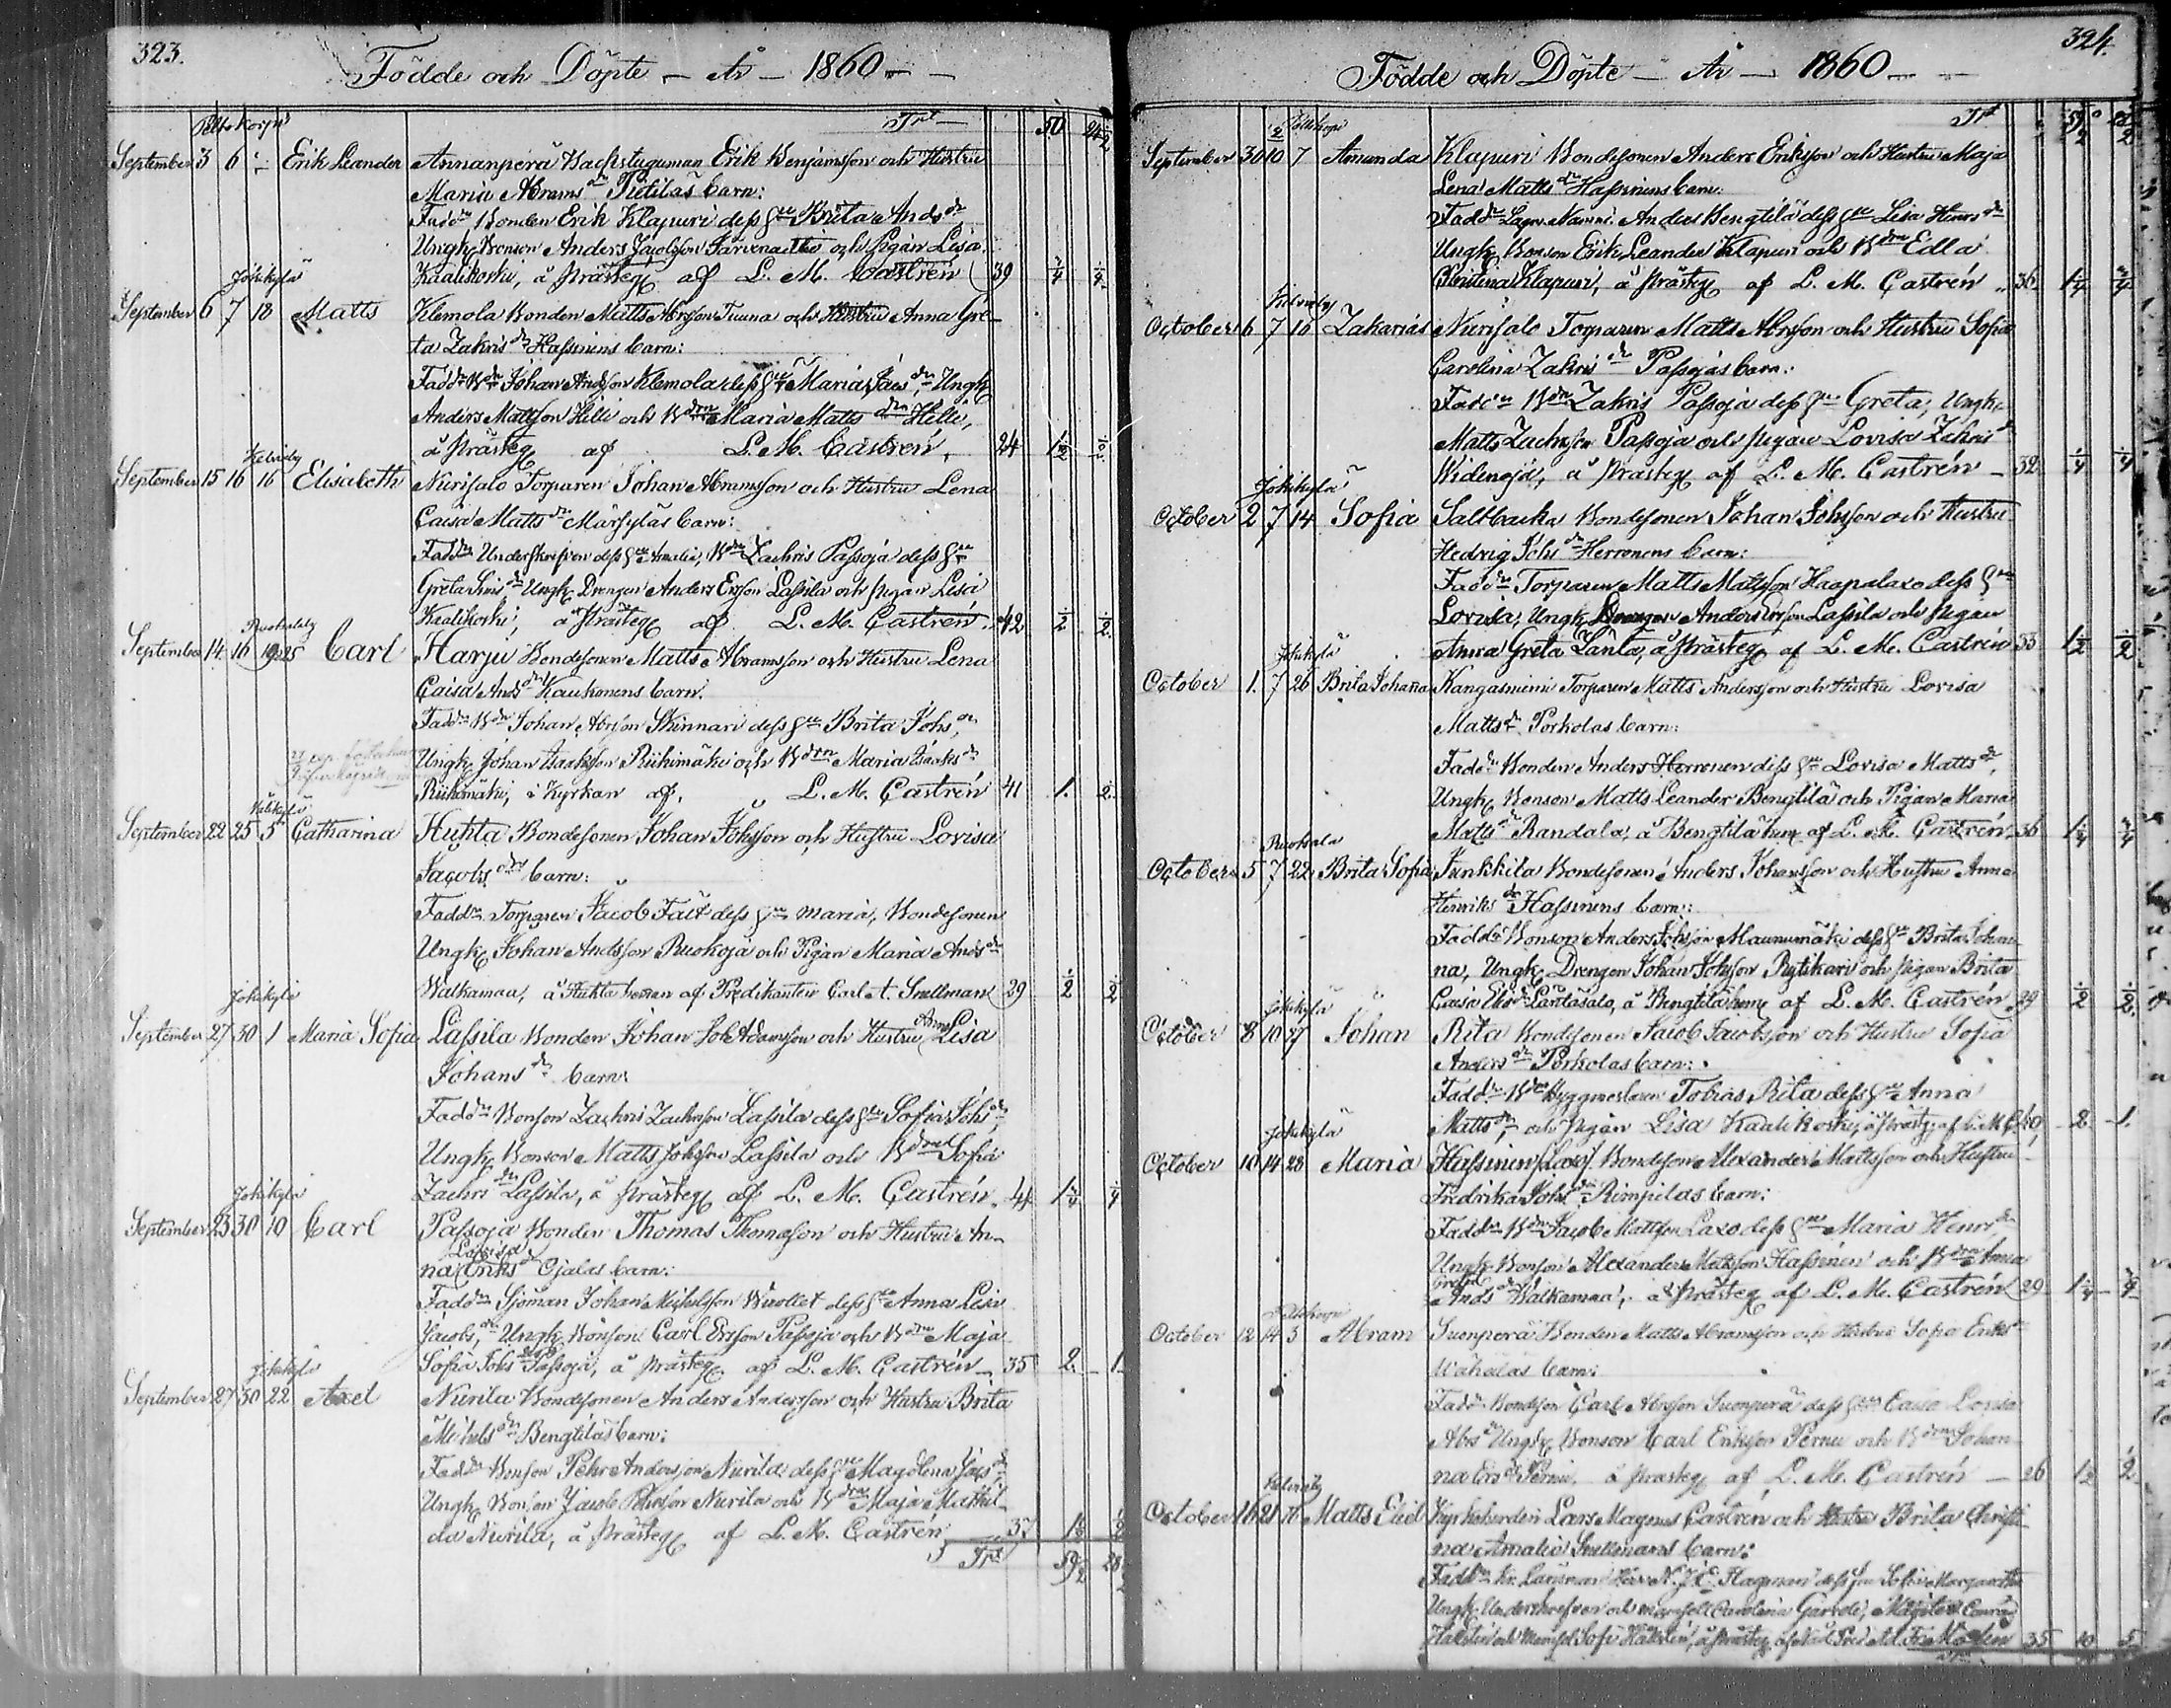 323.
Födde och Döpte – År – 1860 –
Trt
September 3 6 Erik Leander Annanperä Backstuguman Erik Benjamsson och Hustru
Maria Abrams dr Pietiläs barn:
Fadd. Bonden Erik Klapuri dess Hu Brita Ands dr
Ungk. Bonson Anders Jacobsson och pigan Lisa
Kaalikoski, å Prästeg af L. M. Castrén 39
Jokikylä
September 6 7 18 Matts Klemola Bonden Matts Abrsson Tiuna och Hustru Anna Gre-
ta Zakris dr Hassinens barn:
Fadd. Bdn Johan Andsson Klemola dess Hu Maria Jacs dr, Ungk
Anders Mattsson Hilli och Bdrn Maria Matts dr Hilli,
å Prästeg af L. M. Castrén, 24
Kelviby
September 15 16 16 Elisabeth Nurisalo Torparen Johan Abramsson och Hustru Lena
Caisa Matts dr Märsyläs barn:
Fadd. Underskrefven dess Hu Amalia, Bdn Zachris Passoja dess Hu
Greta dr Ungk Drengen Anders Ersson Lassila och pigan Lisa
Kaalikoski, å Prästeg af L. M. Castrén. 42
Ruokala
September 14 16 25 Carl Harju Bondesonen Matts Abramsson och Hustru Lena
Caisa Ands dr Kaukonens barn.
Fadd. Bdn Johan Abrsson Skinnari dess Hu Brita Johs dr,
Ungk Johan Isaksson Riihimäki och Bdrn Maria Isaks dr
Riihimäki, i Kyrkan af L. M. Castrén 41 1. 2.
September 22 25 5 Catharina Huhta Bondesonen Johan Johsson och Hustru Lovisa
Jacobs dr barn:
Fadd. Torparen Jacob Fält dess Hu Maria, Bondesonen
Ungk Johan Andsson Ruokoja och Pigan Maria Ands dr
Walkamaa, å Huhta heman af Predikanten Carl A. Snellman 29
Jokikylä
September 27 30 1 Maria Sofia Lassila Bonden Johan Adamsson och Hustru Anna Lisa
Johans dr barn:
Fadd. Bonson Zachris Zachrisson Lassila dess Hu Sofia Johs dr,
Ungk Bonson Matts Johsson Lassila och Bdrn Sofia
Zachris dr Lassila, å Prästeg af L. M. Castrén.
Jokikylä
September 23 30 10 Carl Passoja Bonden Thomas Thomasson och Hustru An-
na Lovisa Eriks dr Ojalas barn:
Fadd. Sjöman Johan Michelsson dess Hu Anna Lisa
Jacobs dr, Ungk Bonson Carl Ersson Passoja och Bdrn Maja
Sofia Johs dr Passoja, å Prästeg af L. M. Castrén 35 2. 1.
Jokikylä
September 27 30 22 Axel Nurila Bondesonen Anders Andersson och Hustru Brita
Michels dr Bengtiläs barn:
Fadd. Bonson Pehr Andersson Nurila dess Hu Magdlena Jacs dr,
Ungk Bonson Jacob Nurila och Bdrn Maja Mathil-
da Nurila, å Prästeg af L. M. Castrén 37
Trt
324.
Födde och Döpte – År – 1860 –
Trt
September 30 10 7 Amanda Klapuri Bondesonen Anders Eriksson och Hustru Maja
Lena Matts dr Hassinens barn:
Fadd. Anders Bengtilä dess Hu Lisa Henrs dr
Ungk Bonson Erik Leander Klapuri och Bdrn Edla
Christina Klapuri, å Prästeg af L. M. Castrén 36
Kelviby
October 6 7 16 Zakarias Nurisalo Torparen Matts Abrsson och Hustru Sofia
Carolina Zakris dr Passojas barn:
Fadd. Bdn Zakris Passoja dess Hu Greta, Ungk
Matts Zachrisson Passoja och pigan Lovisa Zakris dr
Widenoja, å Prästeg af L. M. Castrén 32
Jokikylä
October 2 7 14 Sofia Saltbacka Bondesonen Johan Johsson och Hustru
Hedvig Johs dr Herronens barn:
Fadd. Torparen Matts Mattsson Haapalaxo dess Hu
Lovisa, Ungk Drengen Anders Ersson Lassila och pigan
Anna Greta Länta, å Prästeg af L. M. Castrén 33
Jokikylä
October 1. 7 26 Brita Johana Kangasniemi Torparen Matts Andersson och Hustru Lovisa
Matts dr Porkolas barn:
Fadd. Bonden Anders Herronen dess Hu Lovisa Matts dr,
Ungk Bonson Matts Leander Bengtilä och Pigan Maria
Matts dr Randala, å Bengtilä hem af L. M. Castrén 36
Ruokala
October 5 7 22 Brita Sofia Junkkila Bondesonen Anders Johansson och Hustru Anna
Henriks dr Hassinens barn:
Fadd. Bonson Anders Johsson Maunumäki dess Hu Brita Johan-
na, Ungk Drengen Johan Johsson Rytikari och pigan Brita
Caisa Lantäsalo, å Bengtilä hem af L. M. Castrén 29
Jokikylä
October 8 10 27 Johan Rita Bondesonen Jacob Jacobsson och Hustru Sofia
Anders dr Porkolas barn:
Fadd. Tobias Rita dess Hu Anna
Matts dr, och pigan Lisa Kaalikoski, å Prästg. af L. M. C. 40 2 1.
Jokikylä
October 10 14 28 Maria Hassinen (Laxo) Bondeson Alexander Mattsson och Hustru
Fredrika Johs dr Rimpilas barn:
Fadd. Bdn Jacob Mattsson Laxo dess Hu Maria Henrs dr
Ungk Bonson Alexander Mattsson Hassinen och Bdrn Anna
Greta Ands dr Walkamaa, å Prästeg af L. M. Castrén 29
October 12 14 5 Abram Suonperä Bonden Matts Abramsson och Hustru Sofia Eriks dr
Wähäläs barn:
Fadd. Bondson Carl Abrsson Suonperä dess Hu Caisa Lovisa
Abrs dr Ungk Bonson Carl Eriksson Pernu och Bdrn Johan-
na Ers dr Pernu, å Prästeg af L. M. Castrén 26
Kelviby
October 16 21 16 Matts Elid Kyrkoherden Lars Magnus Castrén och Hustru Brita Christi-
na Amalia Snellmans barn:
Fadd. Kr. Länsman Herr Hagman dess Fru Sofia Margaretha
Ungk Underskrefven och mamsell Carolina, Magister Conrad
och Mamsel Sofi, å Prästeg af 35 10 5